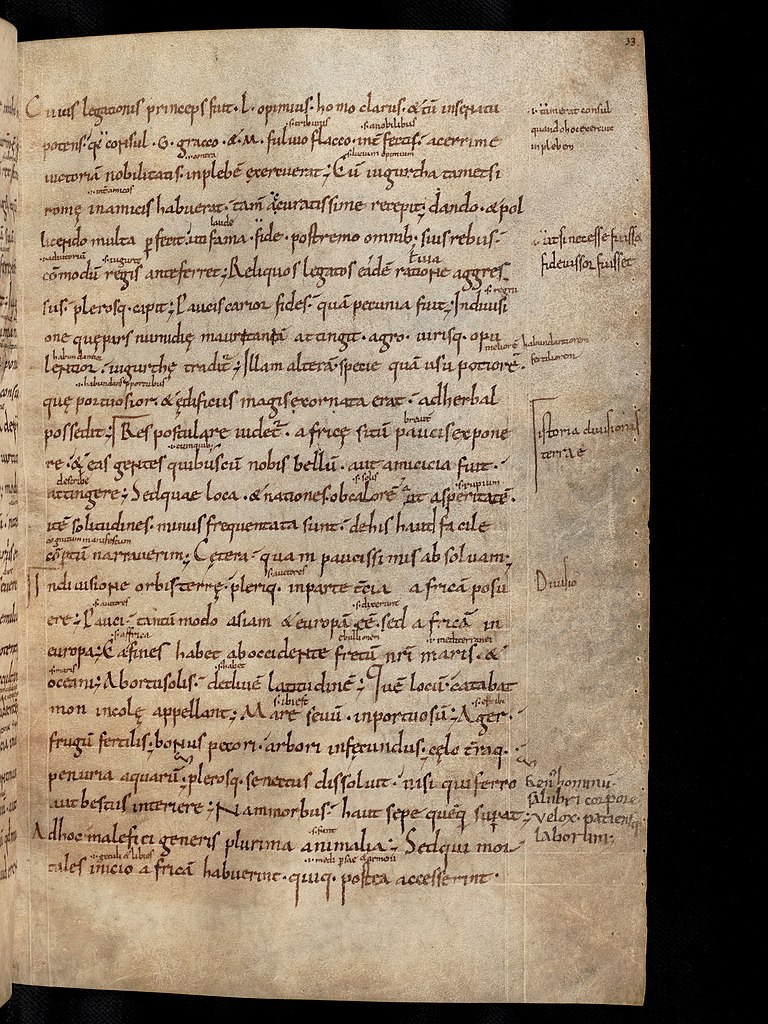 33
Cuius legationis princeps fuit. L. opimius. homo clarus. & tū in senatu
potens. q̄ consul. G. gracco. & M. fulvio flacco. int̄fectis. acerrime
victoriā nobilitatis. in plebē exercuerat; Eū iugurtha tametsi
romę in amicis habuerat. tam̄ accuratissime recepit; dando. & pol
licendo multa perfecit. uti fama. fide. postremo omnib; suis rebus.
cōmodū regis anteferret; Reliquos legatos eadē ratione aggres
sus. plerosq. capit; Paucis carior fides. quā pecunia fuit; In divisi
one quę pars numidię mauretaniā attingit. agro. virisq. opu
lentior. iugurthę tradit̄; Illam alterā specie quā usu potiorē.
quę portuosior. & ędificiis magis exornata erat. adherbal
possedit; Res postulare videt̄. africę sitū paucis expone
re. & eas gentes quibuscū nobis bellū. aut amicicia fuit.
attingere; Sed quae loca. & nationes. ob calorē aut asperitatē.
itē solitudines. minus frequentata sunt. de his haud facile
cōptū narraverim; Cętera quam paucissimis absolvam;
In divisione orbis terrę. pleriq. in parte t̄cia africā posu
ere; Pauci tantūmodo asiam & europā ēē. sed africā in
europa; Ea fines habet ab occidente fretū nr̄i maris. &
oceani; Ab ortu solis. declivē latitudinē; Quē locū catabat
mon incolę appellant; Mare sevū. inportuosū; Ager.
frugū fertilis. bonus pecori. arbori infecundus. cęlo t̄raq.
penuria aquarū; plerosq. senectus dissolvit. nisi qui ferro
aut bestiis interiere; Nam morbus. haut sepe quēq supat;
Ad hoc malefici generis plurima animalia; Sed qui mor
tales inicio africā habuerint. quiq. postea accesserint.
.i. tū merat consul
quando hoc exercuit
in plebem
ut si necesse fuisset
fideiussor fuisset
meliorē habundantiorem
fertiliorem
Istoria divisionis
terrae
Divisio
Gen̄ hominū
salubri corpore
velox. patiens
laborum;